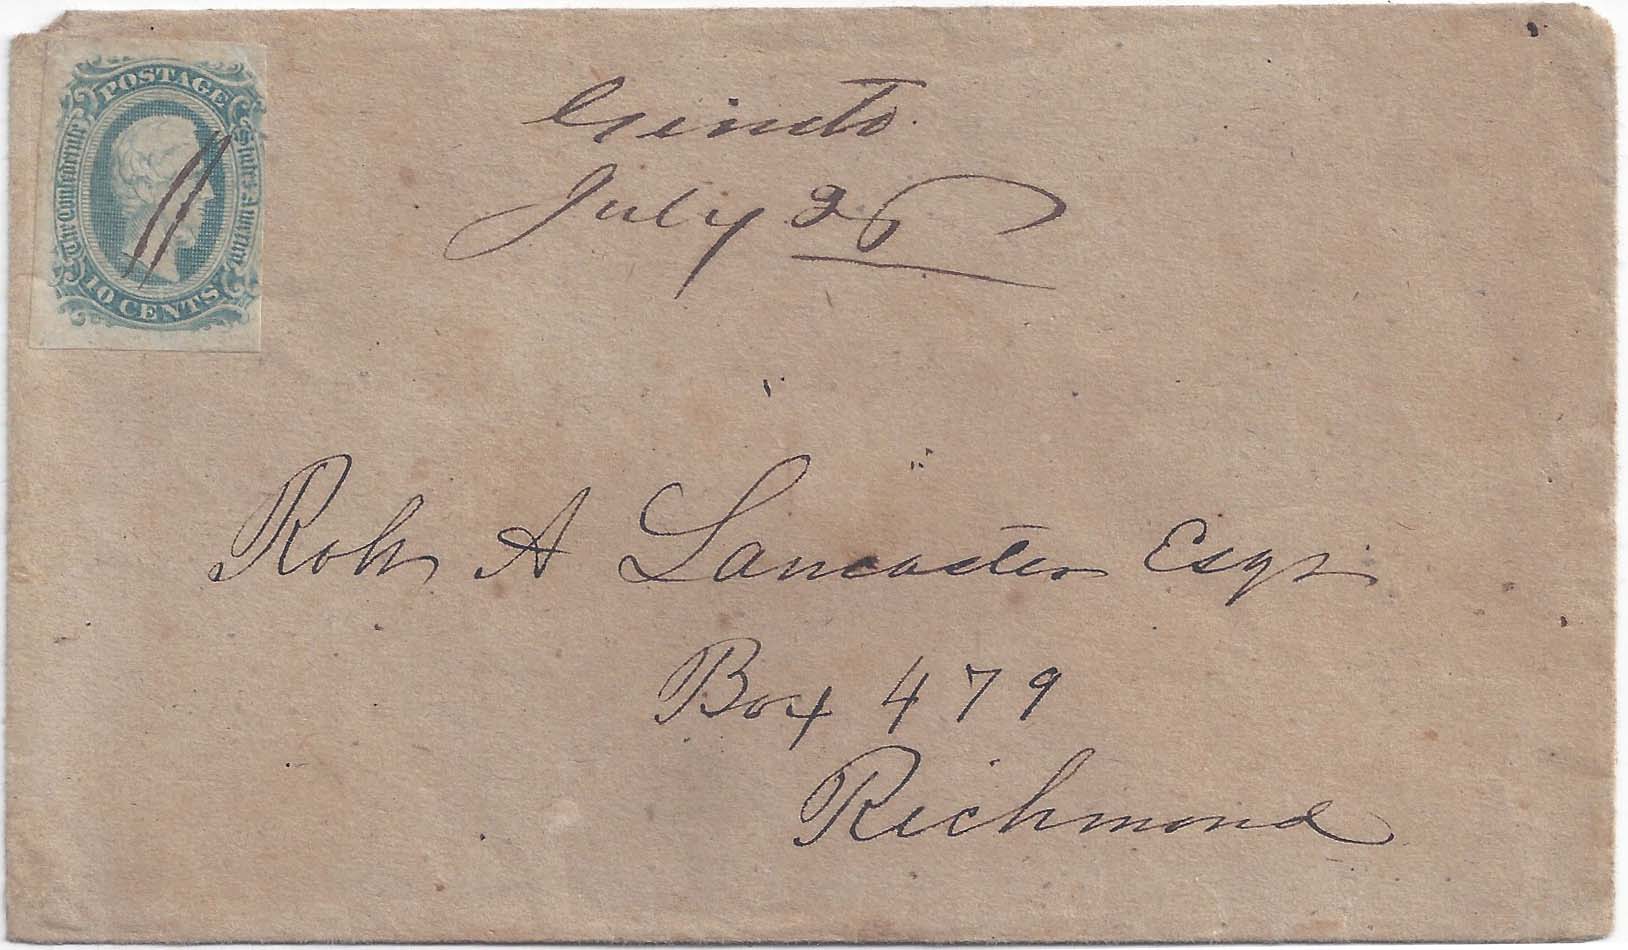 POSTAGE
The Confederate States America
10 CENTS
Genito
July 26
Robt A Lancaster Esqr
Box 479
Richmond